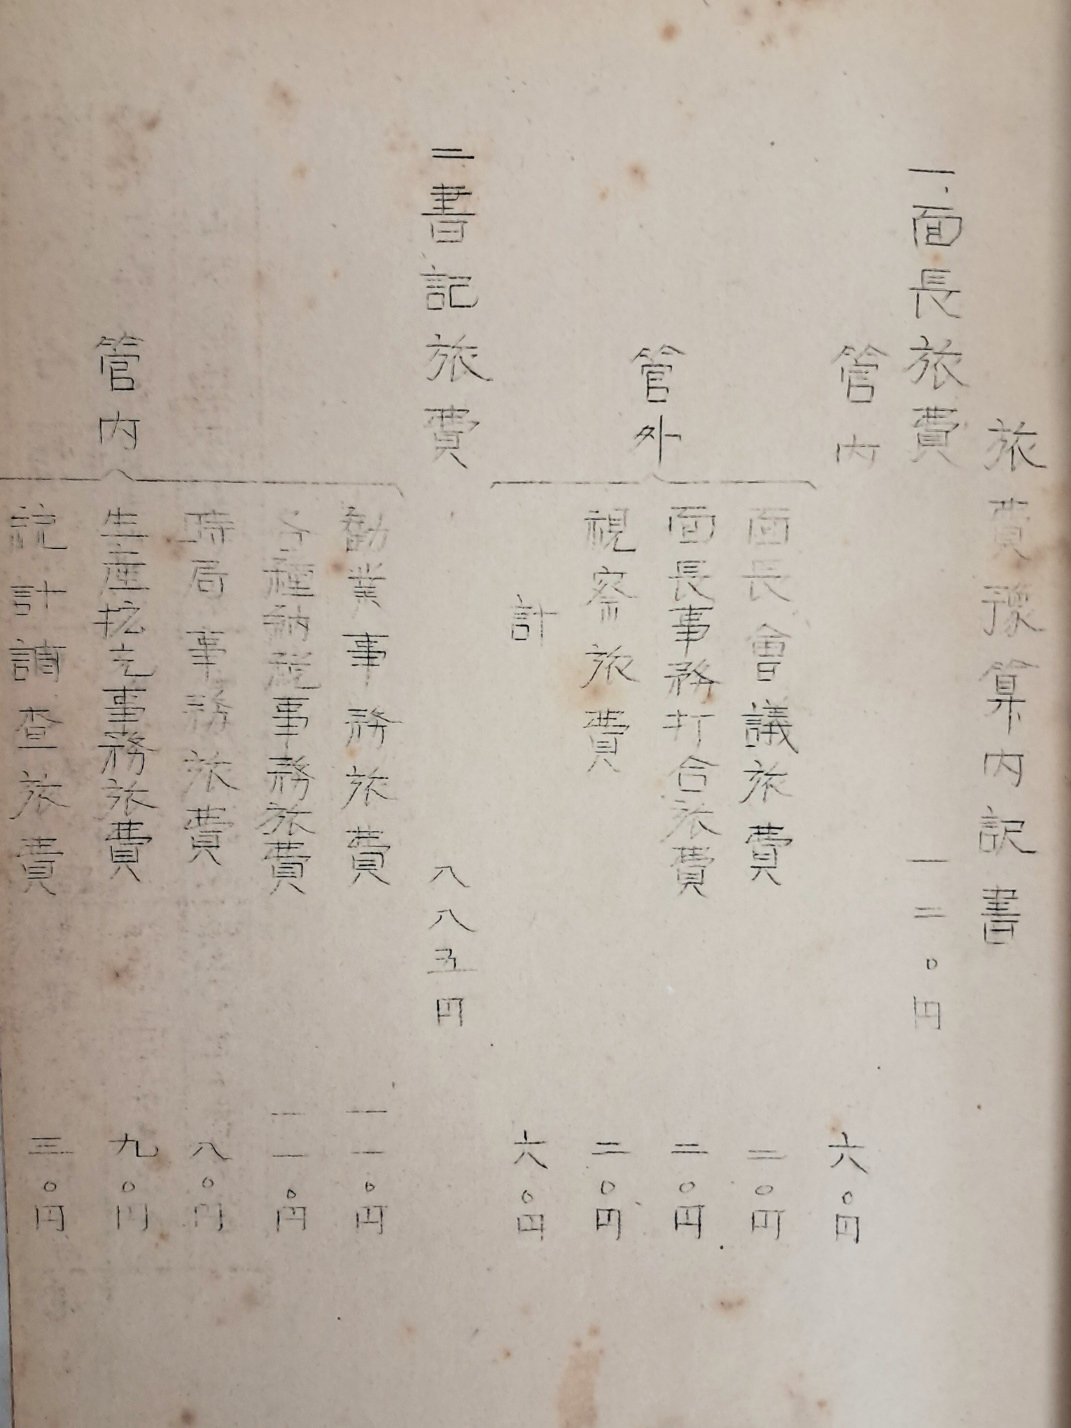 旅費豫算内訳書
一、面長旅費 一二〇円
管内 六〇円
管外
面長會議旅費 二〇円
面長事務打合旅費 二〇円
視察旅費 二〇円
計 六〇円
二、書記旅費 八八五円
管内
勧業事務旅費 一一〇円
各種納税事務旅費 一一〇円
時局事務旅費 八〇円
生産拡充事務旅費 九〇円
統計調査旅費 三〇円